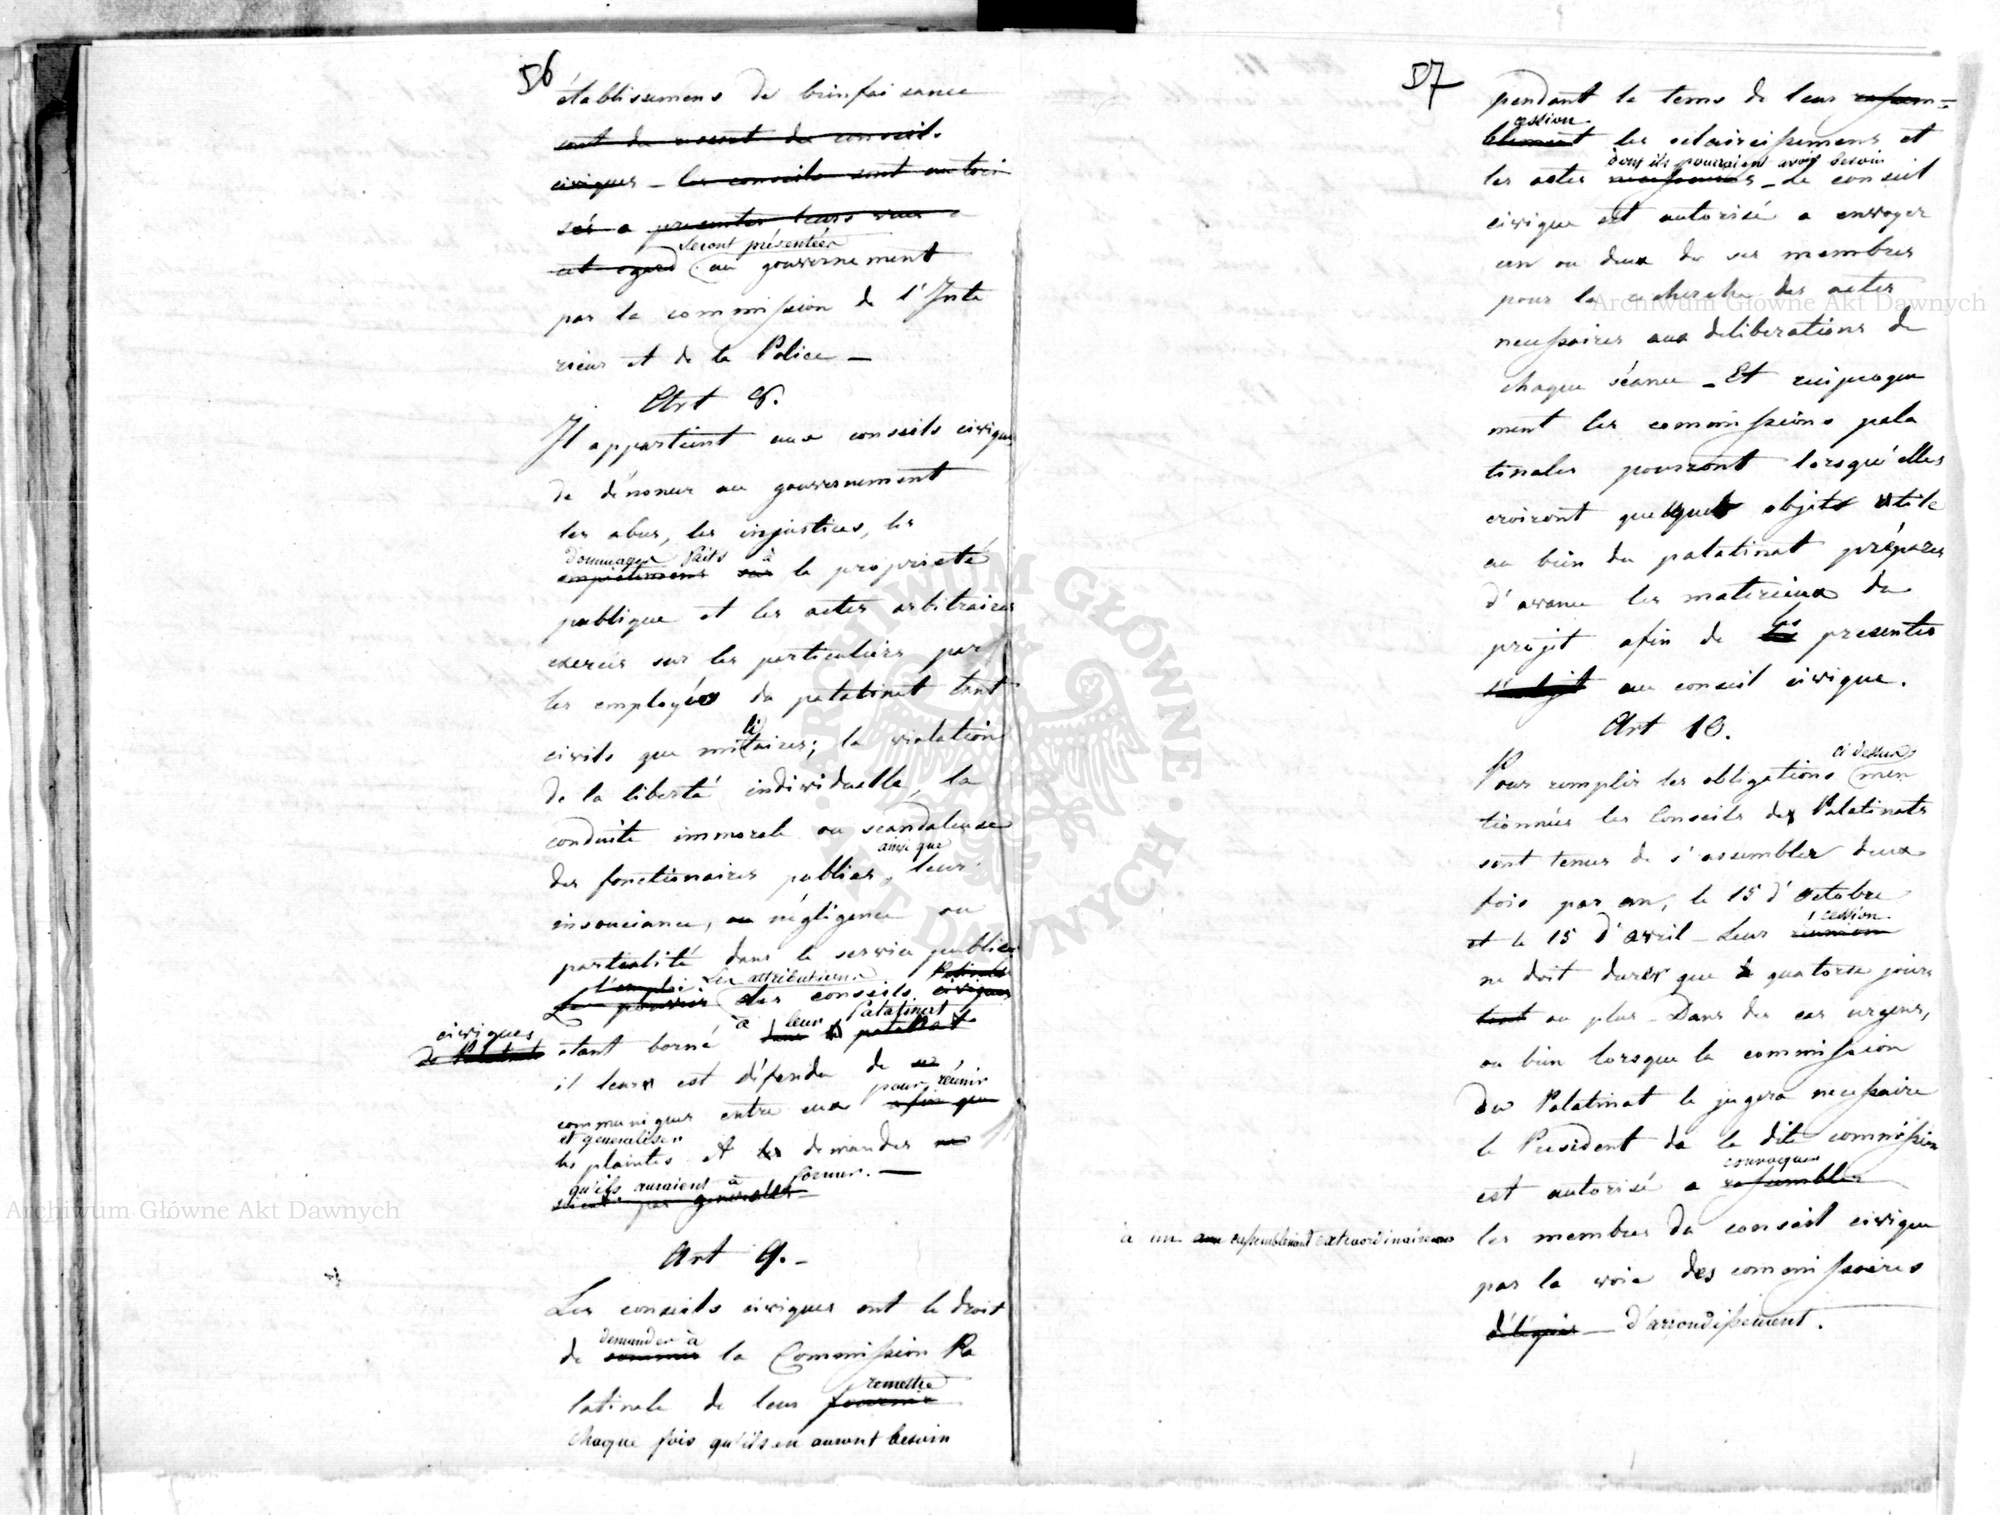 56
établissemens de bienfaisance
sont du ressort du conseil.
civiques – les conseils sont autori
sés a presenter leurs vues a
seront présentées
cet egard au gouvernement
par la commission de l'Inte
rieur et de la Police –
Art 8.
Il appartient aux conseils civiques
de dénoncer au gouvernement
les abus, les injustices, les
dommages faits à
empietemens sur la proprieté
publique et les actes arbitraires
exercés sur les particuliers par
les employés du palatinat tant
li
civils que mitaires; la violation
de la liberté individuelle, la
conduite immorale ou scandaleuse
ainsi que
des fonctionaires publics, leur
insouciance, ou négligence ou
partialité dans le service public
l'emploi Les attributions
Le pouvoir des conseils civiques
à leur Palatinat
civiques
de Palatinat étant borné dans le palatinat
il leur est défendu de se
pour réunir
communiquer entre eux afin que
et generaliser
les plaintes et les demandes ne
qu'ils auraient à former. –
soient pas generales
Art 9. –
Les conseils civiques ont le droit
demander à
de sommer la Commission Pa
remettre
latinale de leur fournir
chaque fois qu'ils en auront besoin
57
pendant le tems de leur rassem=
cession
blement les eclaircissemens et
dont ils pourraient avoir besoin
les actes necessaires – Le conseil
civique est autorisé a envoyer
un ou deux de ses membres
pour la recherche des actes
necessaires aux deliberations de
chaque séance – Et reciproque
ment les commissions pala
tinales pourront lorsqu'elles
croiront quelques objets utile
au bien du palatinat préparer
d'avance les materiaux du
les
projet afin de presenter
l'objet au conseil civique.
Art 10.
ci dessus
Pour remplir les obligations men
tionnées les Conseils des Palatinats
sont tenus de s'assembler deux
fois par an, le 15 d'Octobre
cession
et le 15 d'Avril – Leur réunion
ne doit durer que quatorze jours
tout au plus – Dans des cas urgens,
ou bien lorsque la commission
du Palatinat le jugera necessaire
le President de la dite commission
convoquer
est autorisé a rassembler
à un rassemblement extraordinaire les membres du conseil civique
par la voie des commissaires
délégués – d'arrondissement.
Archiwum Główne Akt Dawnych
Archiwum Główne Akt Dawnych
ARCHIWUM GŁÓWNE · AKT DAWNYCH ·